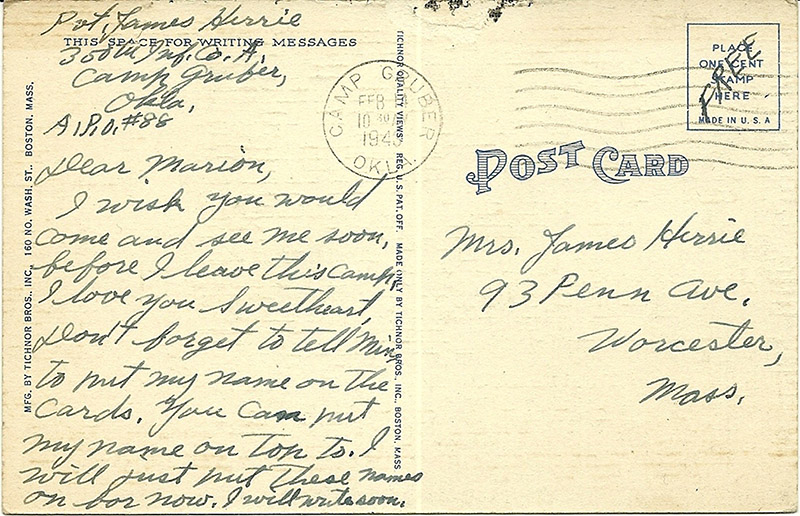 Pvt. James Herrie
THIS SPACE FOR WRITING MESSAGES
350th Inf. Co. A.
Camp Gruber,
Okla,
A.P.O. #88
Dear Marion,
I wish you would
come and see me soon,
before I leave this camp.
I love you Sweetheart
Don't forget to tell
to put my name on the
cards. You can put
my name on top to. I
will just put these names
on for now. I will write soon.
MFG. BY TICHNOR BROS., INC. 160 NO. WASH. ST., BOSTON, MASS.
TICHNOR QUALITY VIEWS REG. U.S. PAT. OFF. MADE ONLY BY TICHNOR BROS., INC., BOSTON, MASS
CAMP GRUBER
FEB
10
OKLA.
PLACE
ONE CENT
STAMP
HERE
MADE IN U.S.A
FREE
POST CARD
Mrs. James Herrie
93 Penn Ave.
Worcester,
Mass.